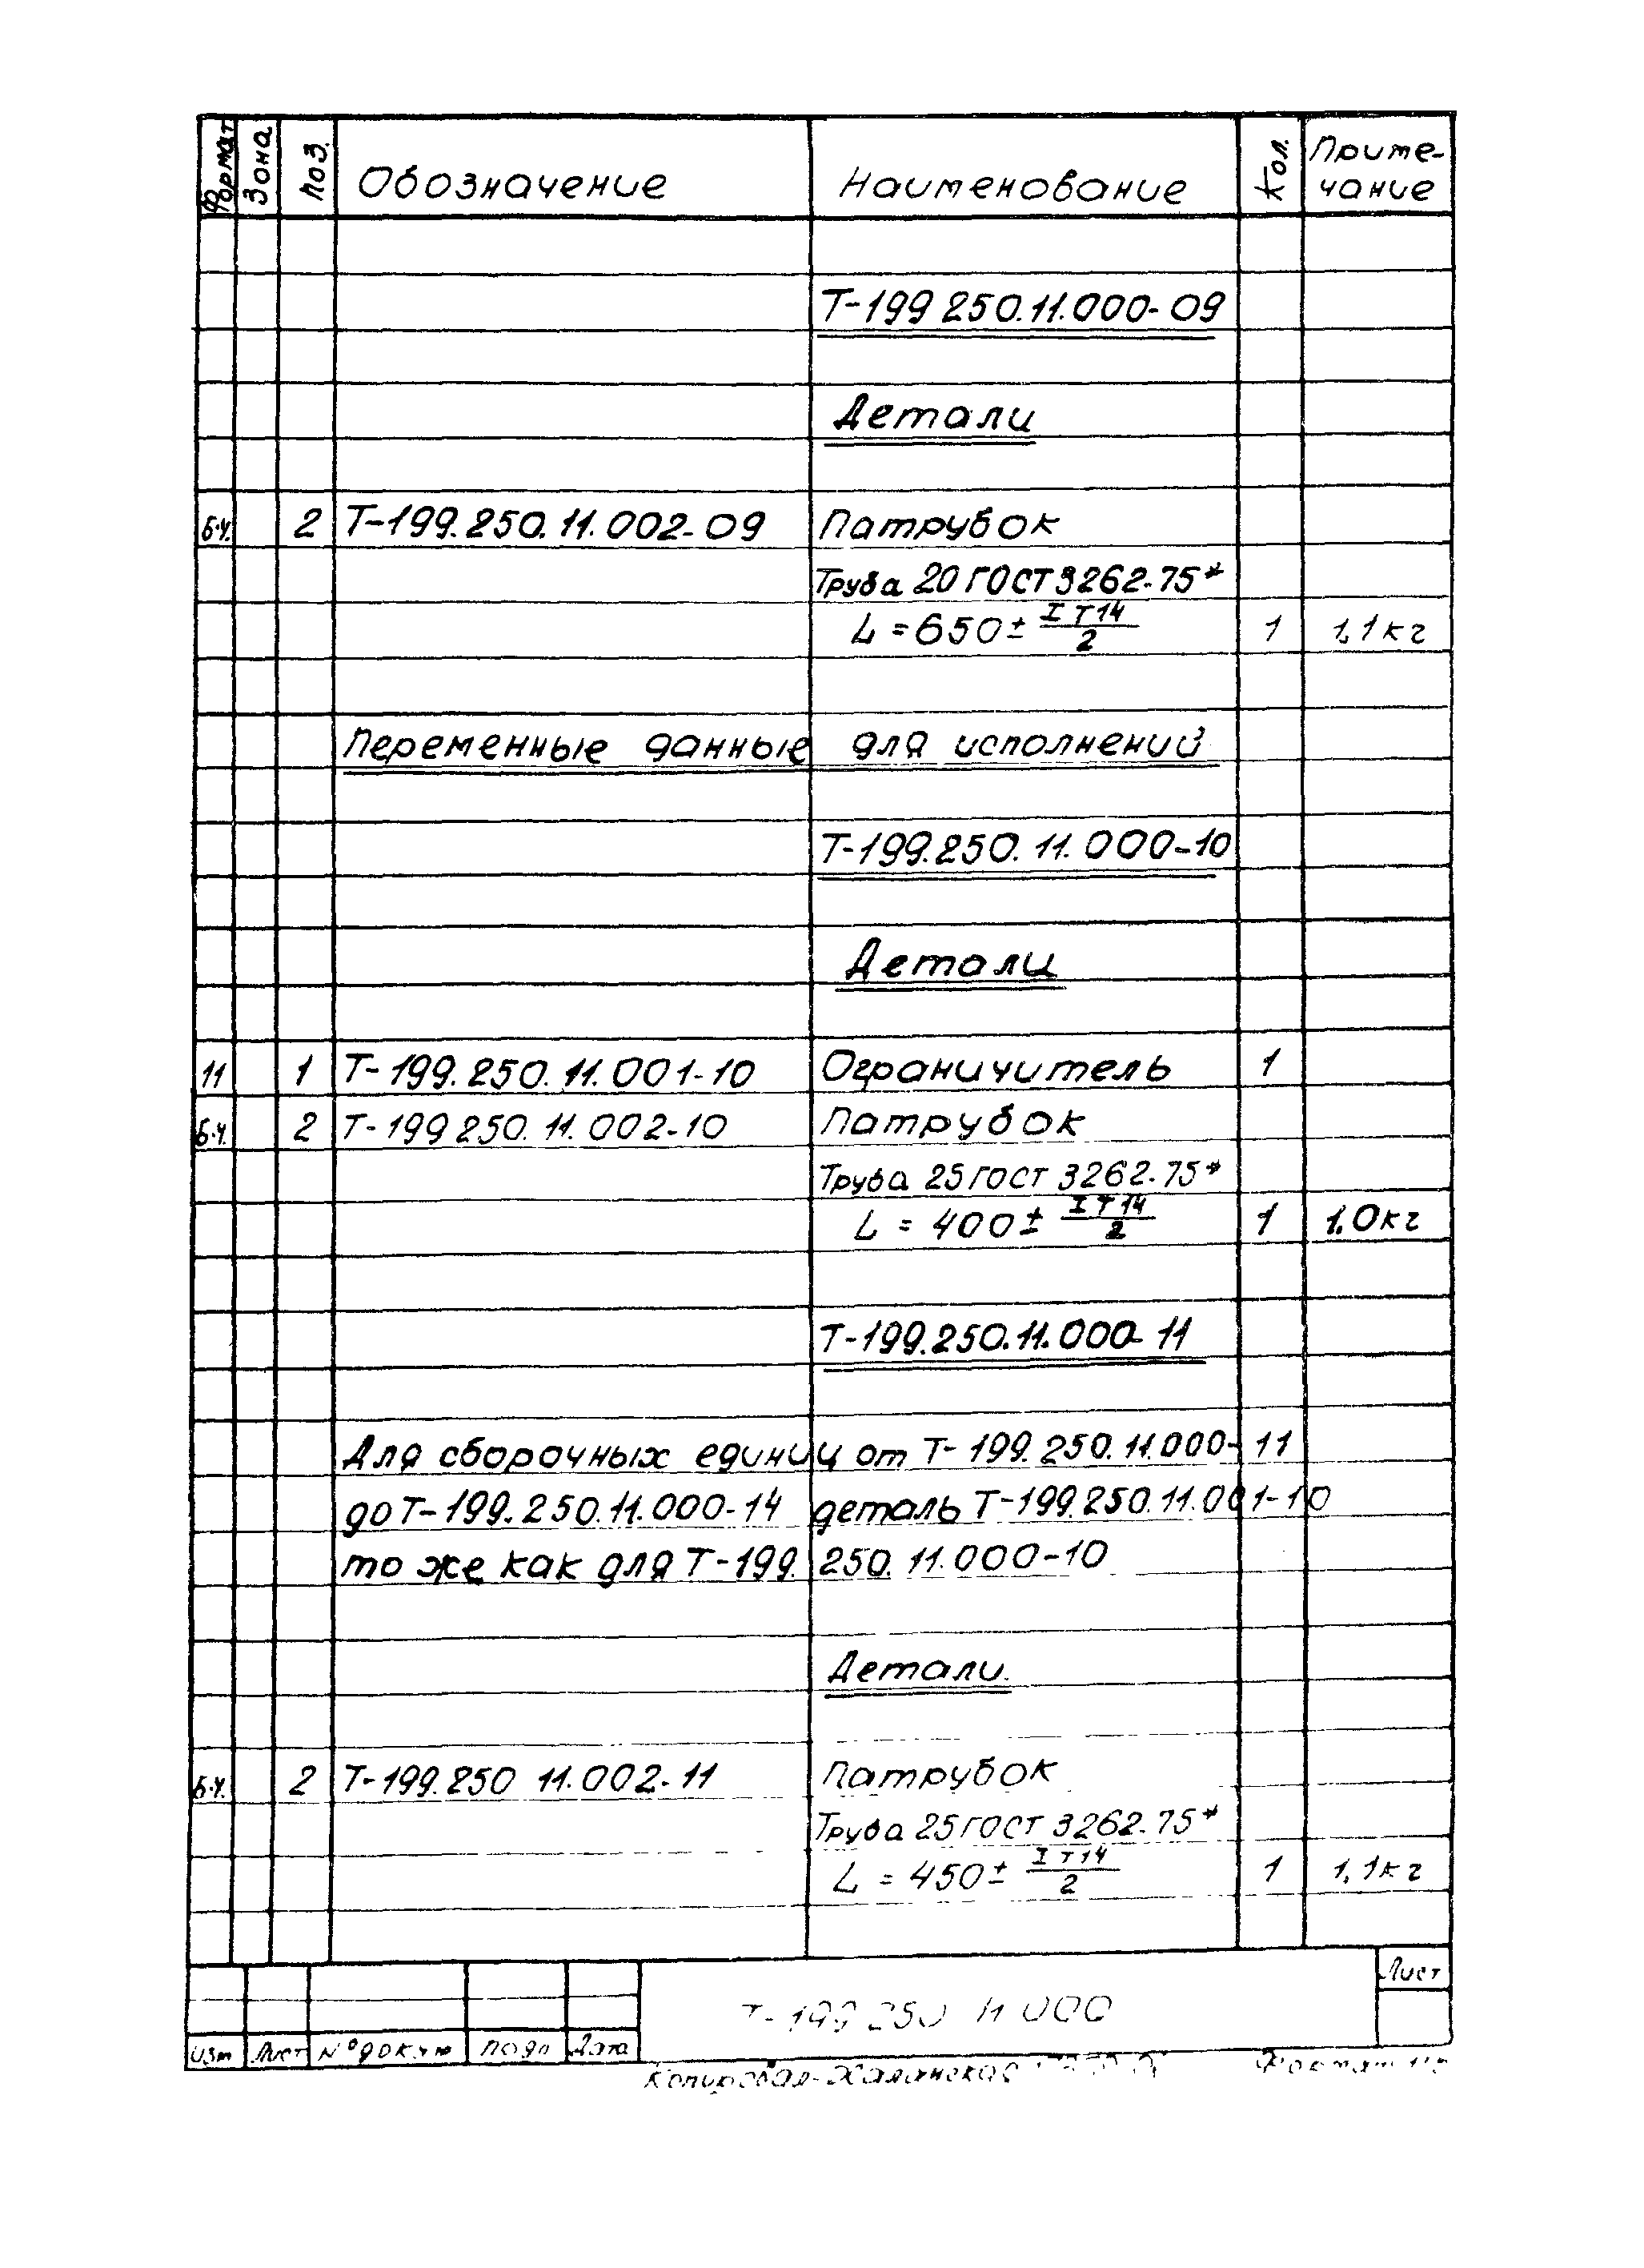 Формат Зона Поз. Обозначение Наименование Кол. Приме-
чание
Т-199 250.11.000-09
Детали
Б.Ч. 2 Т-199.250.11.002-09 Патрубок
Труба 20 ГОСТ 3262-75*
L = 650 ± IT14/2 1 1,1кг
Переменные данные для исполнений
Т-199.250.11.000-10
Детали
11 1 Т-199.250.11.001-10 Ограничитель 1
Б.Ч. 2 Т-199 250.11.002-10 Патрубок
Труба 25 ГОСТ 3262-75*
L = 400 ± IT14/2 1 1,0кг
Т-199.250.11.000-11
Для сборочных единиц от Т-199.250.11.000-11
до Т-199.250.11.000-14 деталь Т-199.250.11.001-10
то же как для Т-199.250.11.000-10
Детали
Б.Ч. 2 Т-199.250 11.002-11 Патрубок
Труба 25 ГОСТ 3262-75*
L = 450 ± IT14/2 1 1,1кг
Лист
Т-199 250 11 000
Изм Лист N° докум подп Дата
Копировал-
Формат